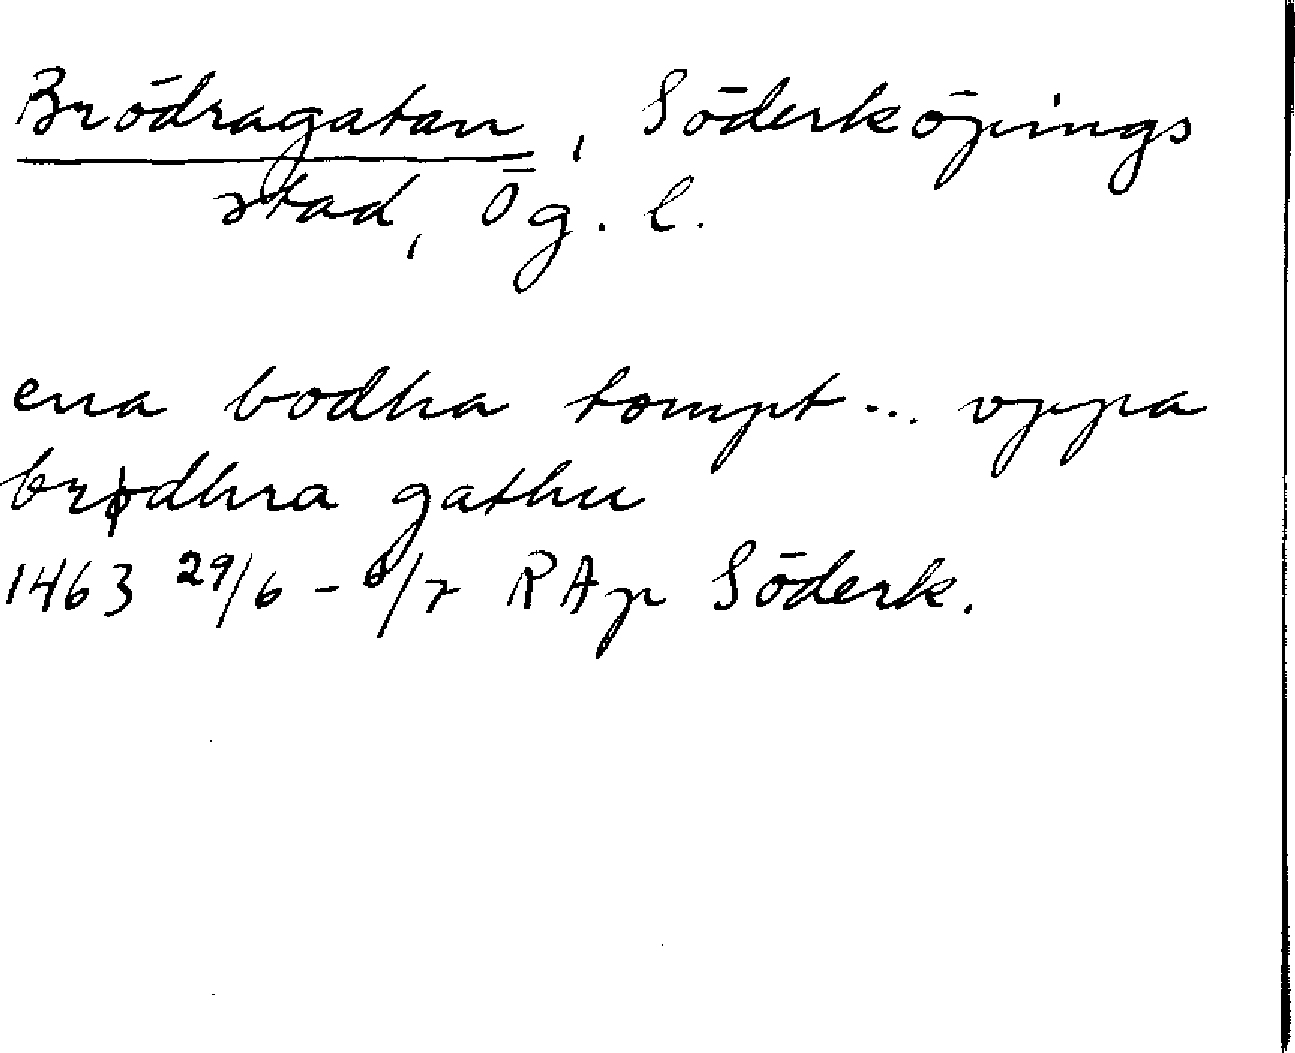 Brödragatan, Söderköpings
stad, Ög. l.
ena bodha tompt... vppa
brødhra gathu
1463 29/6 - 6/7 RAp Söderk.